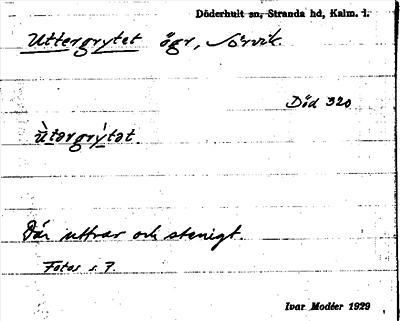 Döderhult sn, Stranda hd, Kalm. l.
Uttergrytet ägr, Sörvik.
Död 320
ùtərgrỳtət.
Där uttrar och stenigt.
Fotos s. 7.
Ivar Modéer 1929